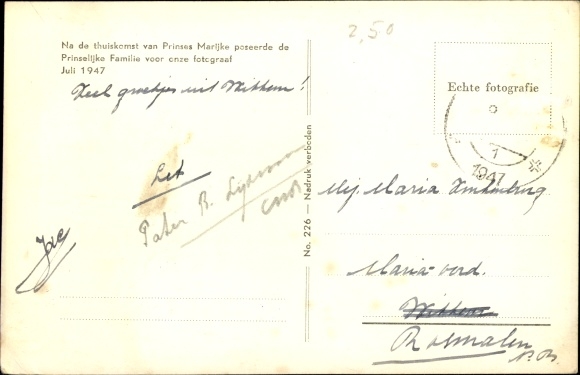 2,50
Na de thuiskomst van Prinses Marijke poseerde de
Prinselijke Familie voor onze fotograaf
Juli 1947
Veel groetjes uit Wittem!
Pater B.
Jac
No. 226 — Nadruk verboden
Echte fotografie
1
1947
Mej. Maria
Maria-oord.
Wittem
Rosmalen